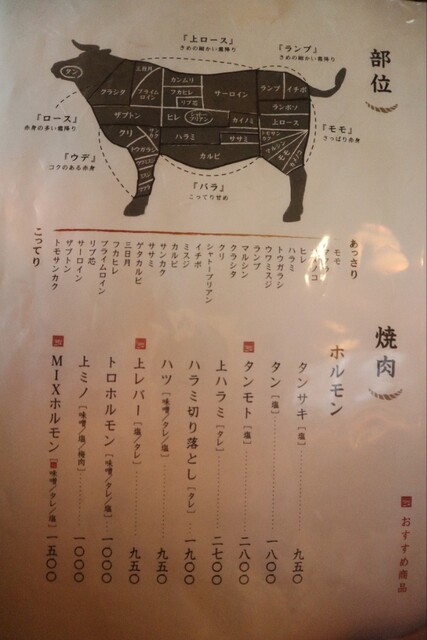 部位
『上ロース』
きめの細かい霜降り
『ランプ』
きめの細かい霜降り
『ロース』
赤身の多い霜降り
『ウデ』
コクのある赤身
『バラ』
こってり甘め
『モモ』
さっぱり赤身
タン
クラシタ
三日月
プライムロイン
カンムリ
フカヒレ
リブ芯
サーロイン
ランプ
イチボ
ザブトン
ヒレ
シャトーブリアン
カイノミ
ランボソ
上ロース
クリ
ハラミ
ササミ
カルビ
トウガラシ
マルシン
モモ
あっさり
モモ
ヒレ
ハラミ
トウガラシ
ウワミスジ
ランプ
マルシン
クラシタ
クリ
シャトーブリアン
イチボ
ミスジ
カルビ
サンカク
ササミ
ゲタカルビ
三日月
フカヒレ
プライムロイン
リブ芯
サーロイン
ザブトン
トモサンカク
こってり
焼肉
おすすめ商品
ホルモン
タンサキ［塩］ 九五〇
タン［塩］ 一八〇〇
タンモト［塩］ 二八〇〇
上ハラミ［タレ］ 二七〇〇
ハラミ切り落とし［タレ］ 一九〇〇
ハツ［味噌/タレ/塩］ 九五〇
上レバー［塩/タレ］ 九五〇
トロホルモン［味噌/タレ/塩］ 一〇〇〇
上ミノ［味噌/塩/梅肉］ 一〇〇〇
MIXホルモン［味噌/タレ/塩］ 一五〇〇